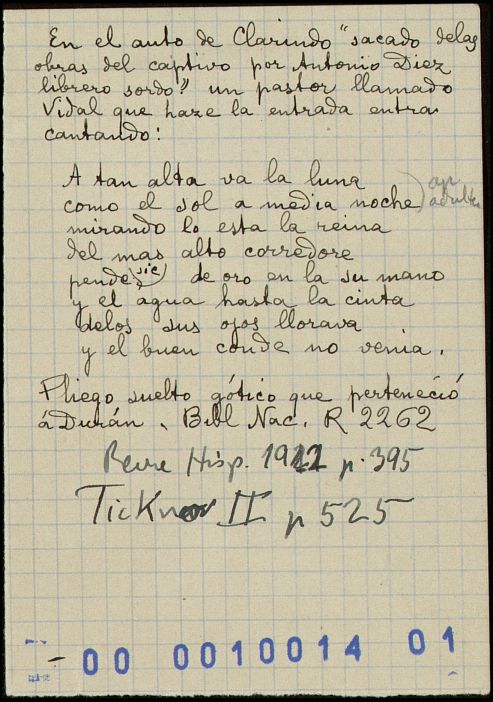 En el auto de Clarindo "sacado delas
obras del captivo por Antonio Diez
librero sordo" un pastor llamado
Vidal que haze la entrada entra
cantando:
A tan alta va la luna
como el sol a media noche
mirando lo esta la reina
del mas alto corredore
pende (sic) de oro en la su mano
y el agua hasta la cinta
delos sus ojos llorava
y el buen conde no venia.
Pliego suelto gótico que perteneció
á Durán. Bibl Nac. R 2262
Revue Hisp. p. 395
Ticknor II p 525
- 00 0010014 01